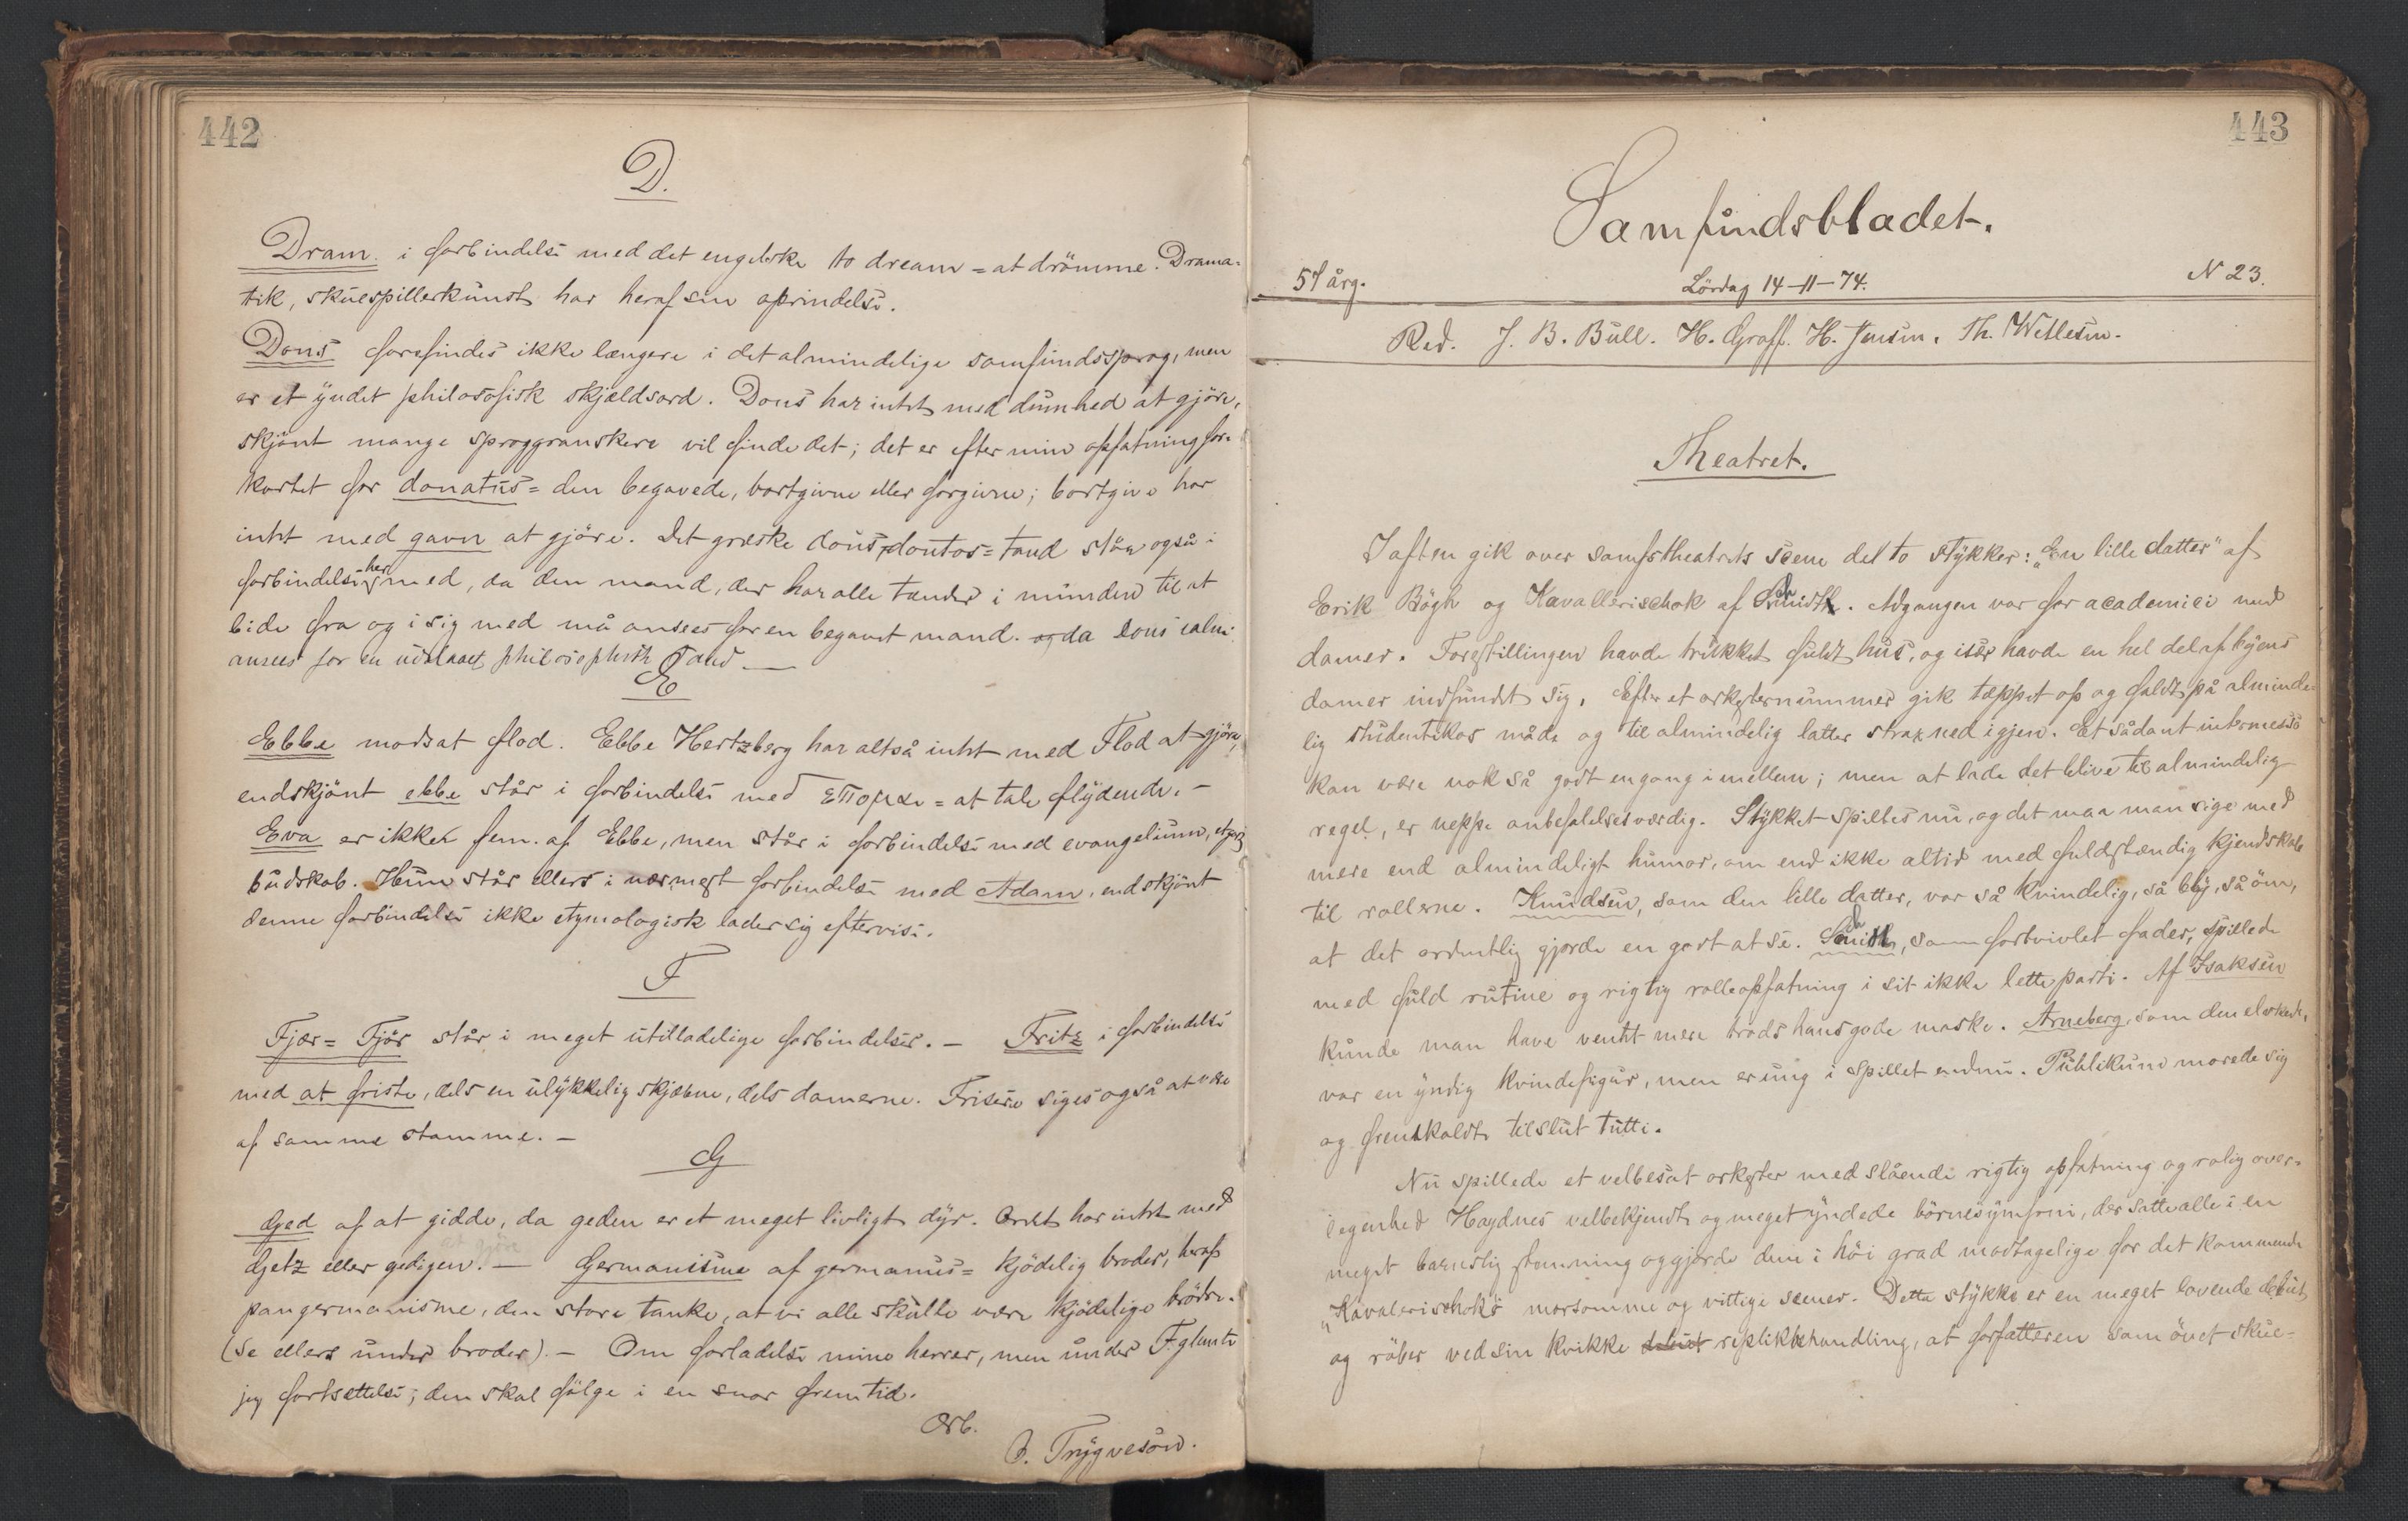 442
D.
Dram. i forbindelse med det engelske to dream = at drömme. Drama-
tik, skuespillerkunst har heraf sin oprindelse.
Dons forefindes ikke længere i det almindelige samfundssprog, men
er et yndet philosofisk skjældsord. Dons har intet med dumhed at gjöre,
skjönt mange sproggranskere vil finde det; det er efter min opfatning for-
kortet for donatus = den begavede, bortgivne eller forgivne; bortgive har
intet med gavn at gjöre. Det græske dous, dontos = tand står også i
forbindelse her med, da den mand, der har alle tænder i munden til at
bide fra og i sig med må ansees for en begavet mand. og da Dons
ansees for en udslaaet philosophisk Tand. —
E
Ebbe modsat flod. Ebbe Hertzberg har altså intet med Flod at gjöre,
endskjönt ebbe står i forbindelse med επομαι = at tale flydende. –
Eva er ikke fem. af Ebbe, men står i forbindelse med evangelium,
budskab. Hun står ellers i nærmest forbindelse med Adam, endskjönt
denne forbindelse ikke etymologisk lader sig eftervise.
F
Fjær = Fjör står i meget utilladelige forbindelser. – Fritz i forbindelse
med at friste, dels en ulykkelig skjæbne, dels damerne. Frisere siges også at være
af samme stamme. –
G
Ged af at gidde, da geden er et meget livligt dyr. Ordet har intet med
Getz eller gedigen at gjöre. – Germanisme af germanus = kjödelig broder, heraf
pangermanisme, den store tanke, at vi alle skulle være kjödelige brödre.
(Se ellers under broder). – Om forladelse mine herrer, men under F glemte
jeg fortsættelse; den skal fölge i en snar fremtid.
Ærb.
O. Trygvesön.
443
Samfundsbladet.
57 årg. Lördag 14–11–74. N 23.
Red. J. B. Bull. H. Graff. H. Jensen. Th. Wetlesen.
Theatret.
Iaften gik over samfstheatrets scene det to stykker: „En lille datter" af
Erik Bögh og Kavallerischok af Smidt. Adgangen var for academici med
damer. Forestillingen havde trukket fuldt hus, og især havde en hel del af byens
damer indfundet sig. Efter et orkesternummer gik tæppet op og faldt på alminde-
lig studentikos måde og til almindelig latter strax ned igjen. Et sådant intermesso
kan være nok så godt engang imellem; men at lade det blive til almindelig
regel, er neppe anbefalelsesværdig. Stykket spilles nu, og det maa man sige med
mere end almindeligt humor, om end ikke altid med fuldstændig kjendskab
til rollerne. Knudsen, som den lille datter, var så kvindelig, så bly, så öm,
at det ordentlig gjorde en godt at se. Smidt, som fortvivlet fader, spillede
med fuld rutine og rigtig rolleopfatning i sit ikke lette parti. Af Isaksen
kunde man have ventet mere trods hans gode maske. Arneberg, som den elskede,
var en yndig kvindefigur, men er ung i spillet endnu. Publikum morede sig
og fremkaldte tilslut tutti.
Nu spillede et velbesat orkester med slående rigtig opfatning og rolig over-
legenhed Haydnes velbekjendte og meget yndede börnesymfoni, der satte alle i en
meget barnslig stemning og gjorde dem i höi grad modtagelige for det kommende
„Kavalerischoks morsomme og vittige scener. Dette stykke er en meget lovende debut,
og röber ved sin kvikke debut replikbehandling, at forfatteren som övet skue-